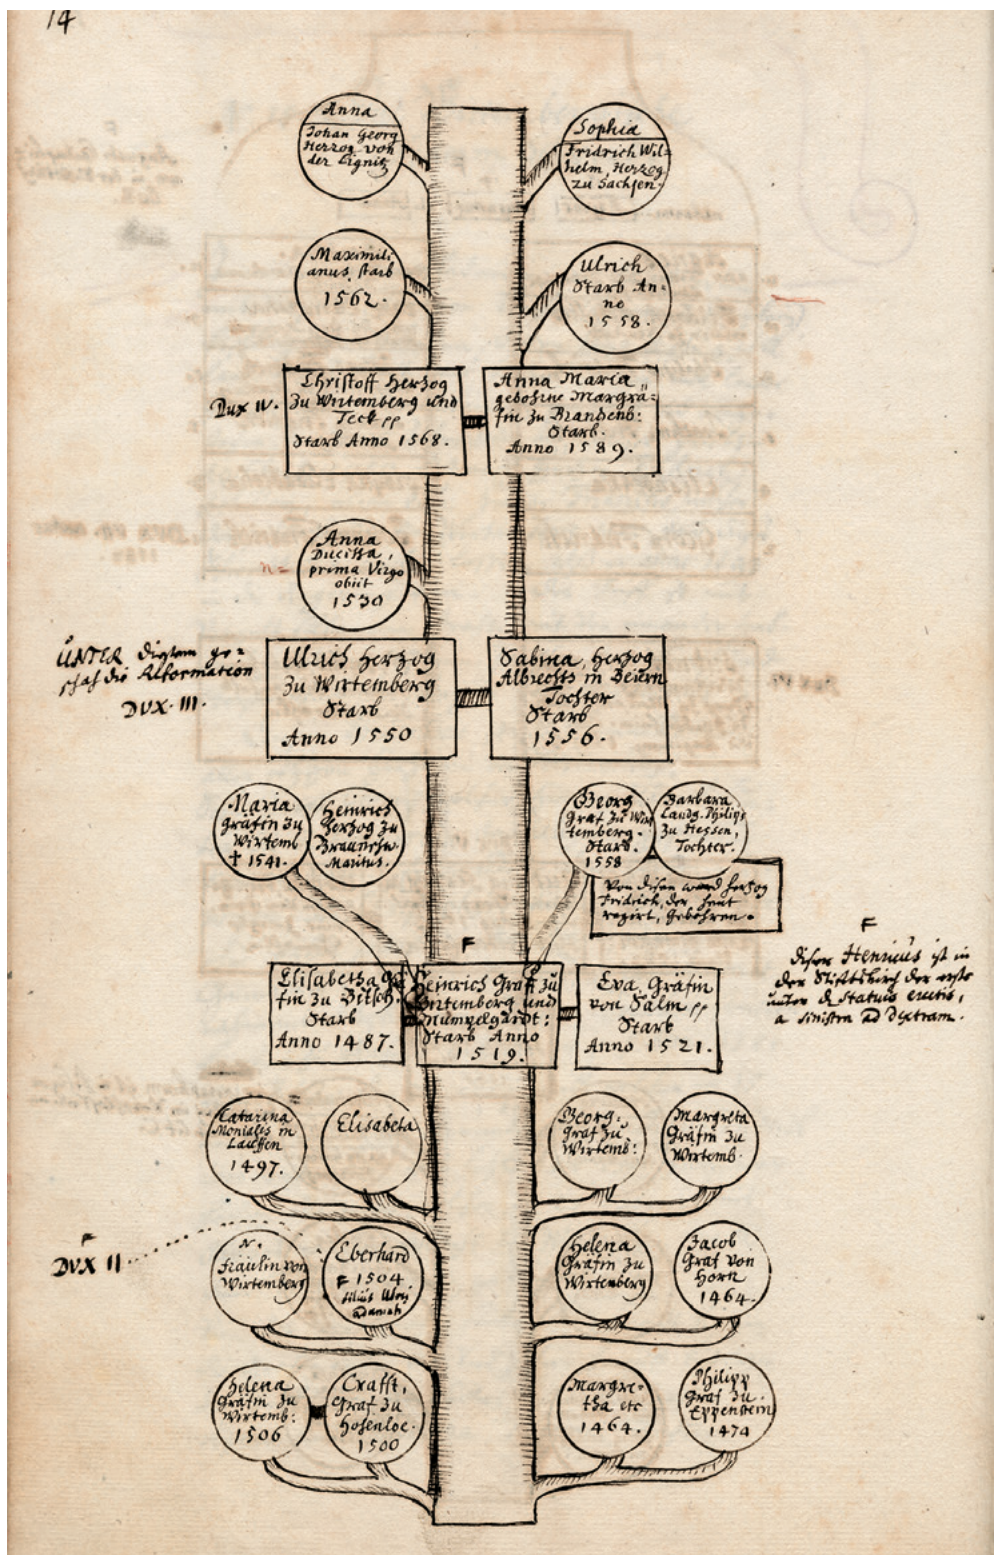 14
Anna
Johan Georg
Herzog von
der Lignitz
Sophia
Fridrich Wil=
helm, Herzog
zu Sachsen.
Maximili
anus, starb
1562.
Ulrich
Starb An=
no
1558.
Dux IV.
Christoff Herzog
zu Wirtemberg und
Teck pp
Starb Anno 1568.
Anna Maria,
gebohrne Margrä=
fin zu Brandenb:
Starb.
Anno 1589.
Anna
Ducissa,
prima Virgo
obiit
1530
n=
UNTER disem ge=
schah die Reformation
DVX. III.
Ulrich Herzog
zu Wirtemberg
Starb
Anno 1550
Sabina, Herzog
Albrechts in Beiern
Tochter
Starb
1556.
Maria
Gräfin zu
Wirtemb
† 1541.
Heinrich
Herzog zu
Braunschw.
Maritus.
Georg
Graf zu Wir
temberg.
Starb.
1558
Barbara
Landg. Philips
zu Hessen,
Tochter.
Von disen ward Herzog
Fridrich, der heut
regirt, Gebohren.
F
Elisabetha Gr
fin zu Bitsch
Starb
Anno 1487.
Heinrich Graf zu
Wirtemberg und
Mümpelgardt:
Starb Anno
1519.
Eva, Gräfin
von Salm pp
Starb
Anno 1521.
F
diser Henricus ist in
der Stiftskirch der erste
unter d. statuis erectis,
a sinistra ad dextram.
Catarina
Monialis in
Lauffen
1497.
Elisabeta
Georg.
Graf zu
Wirtemb:
Margreta
Gräfin zu
Wirtemb.
F
DVX II
N.
Fräulin von
Wirtemberg
Eberhard
F 1504
filius Ulrici
adamati
Helena
Gräfin zu
Wirtemberg
Jacob
Graf von
Horn
1464.
Helena
Gräfin zu
Wirtemb:
1506
Crafft,
Graf zu
Hohenloe.
1500
Margre=
tha etc
1464.
Philipp
Graf zu
Eppenstein
1474